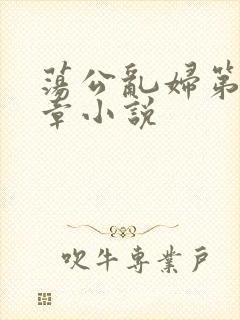 蕩公亂婦第
章小説
吹牛專業戶